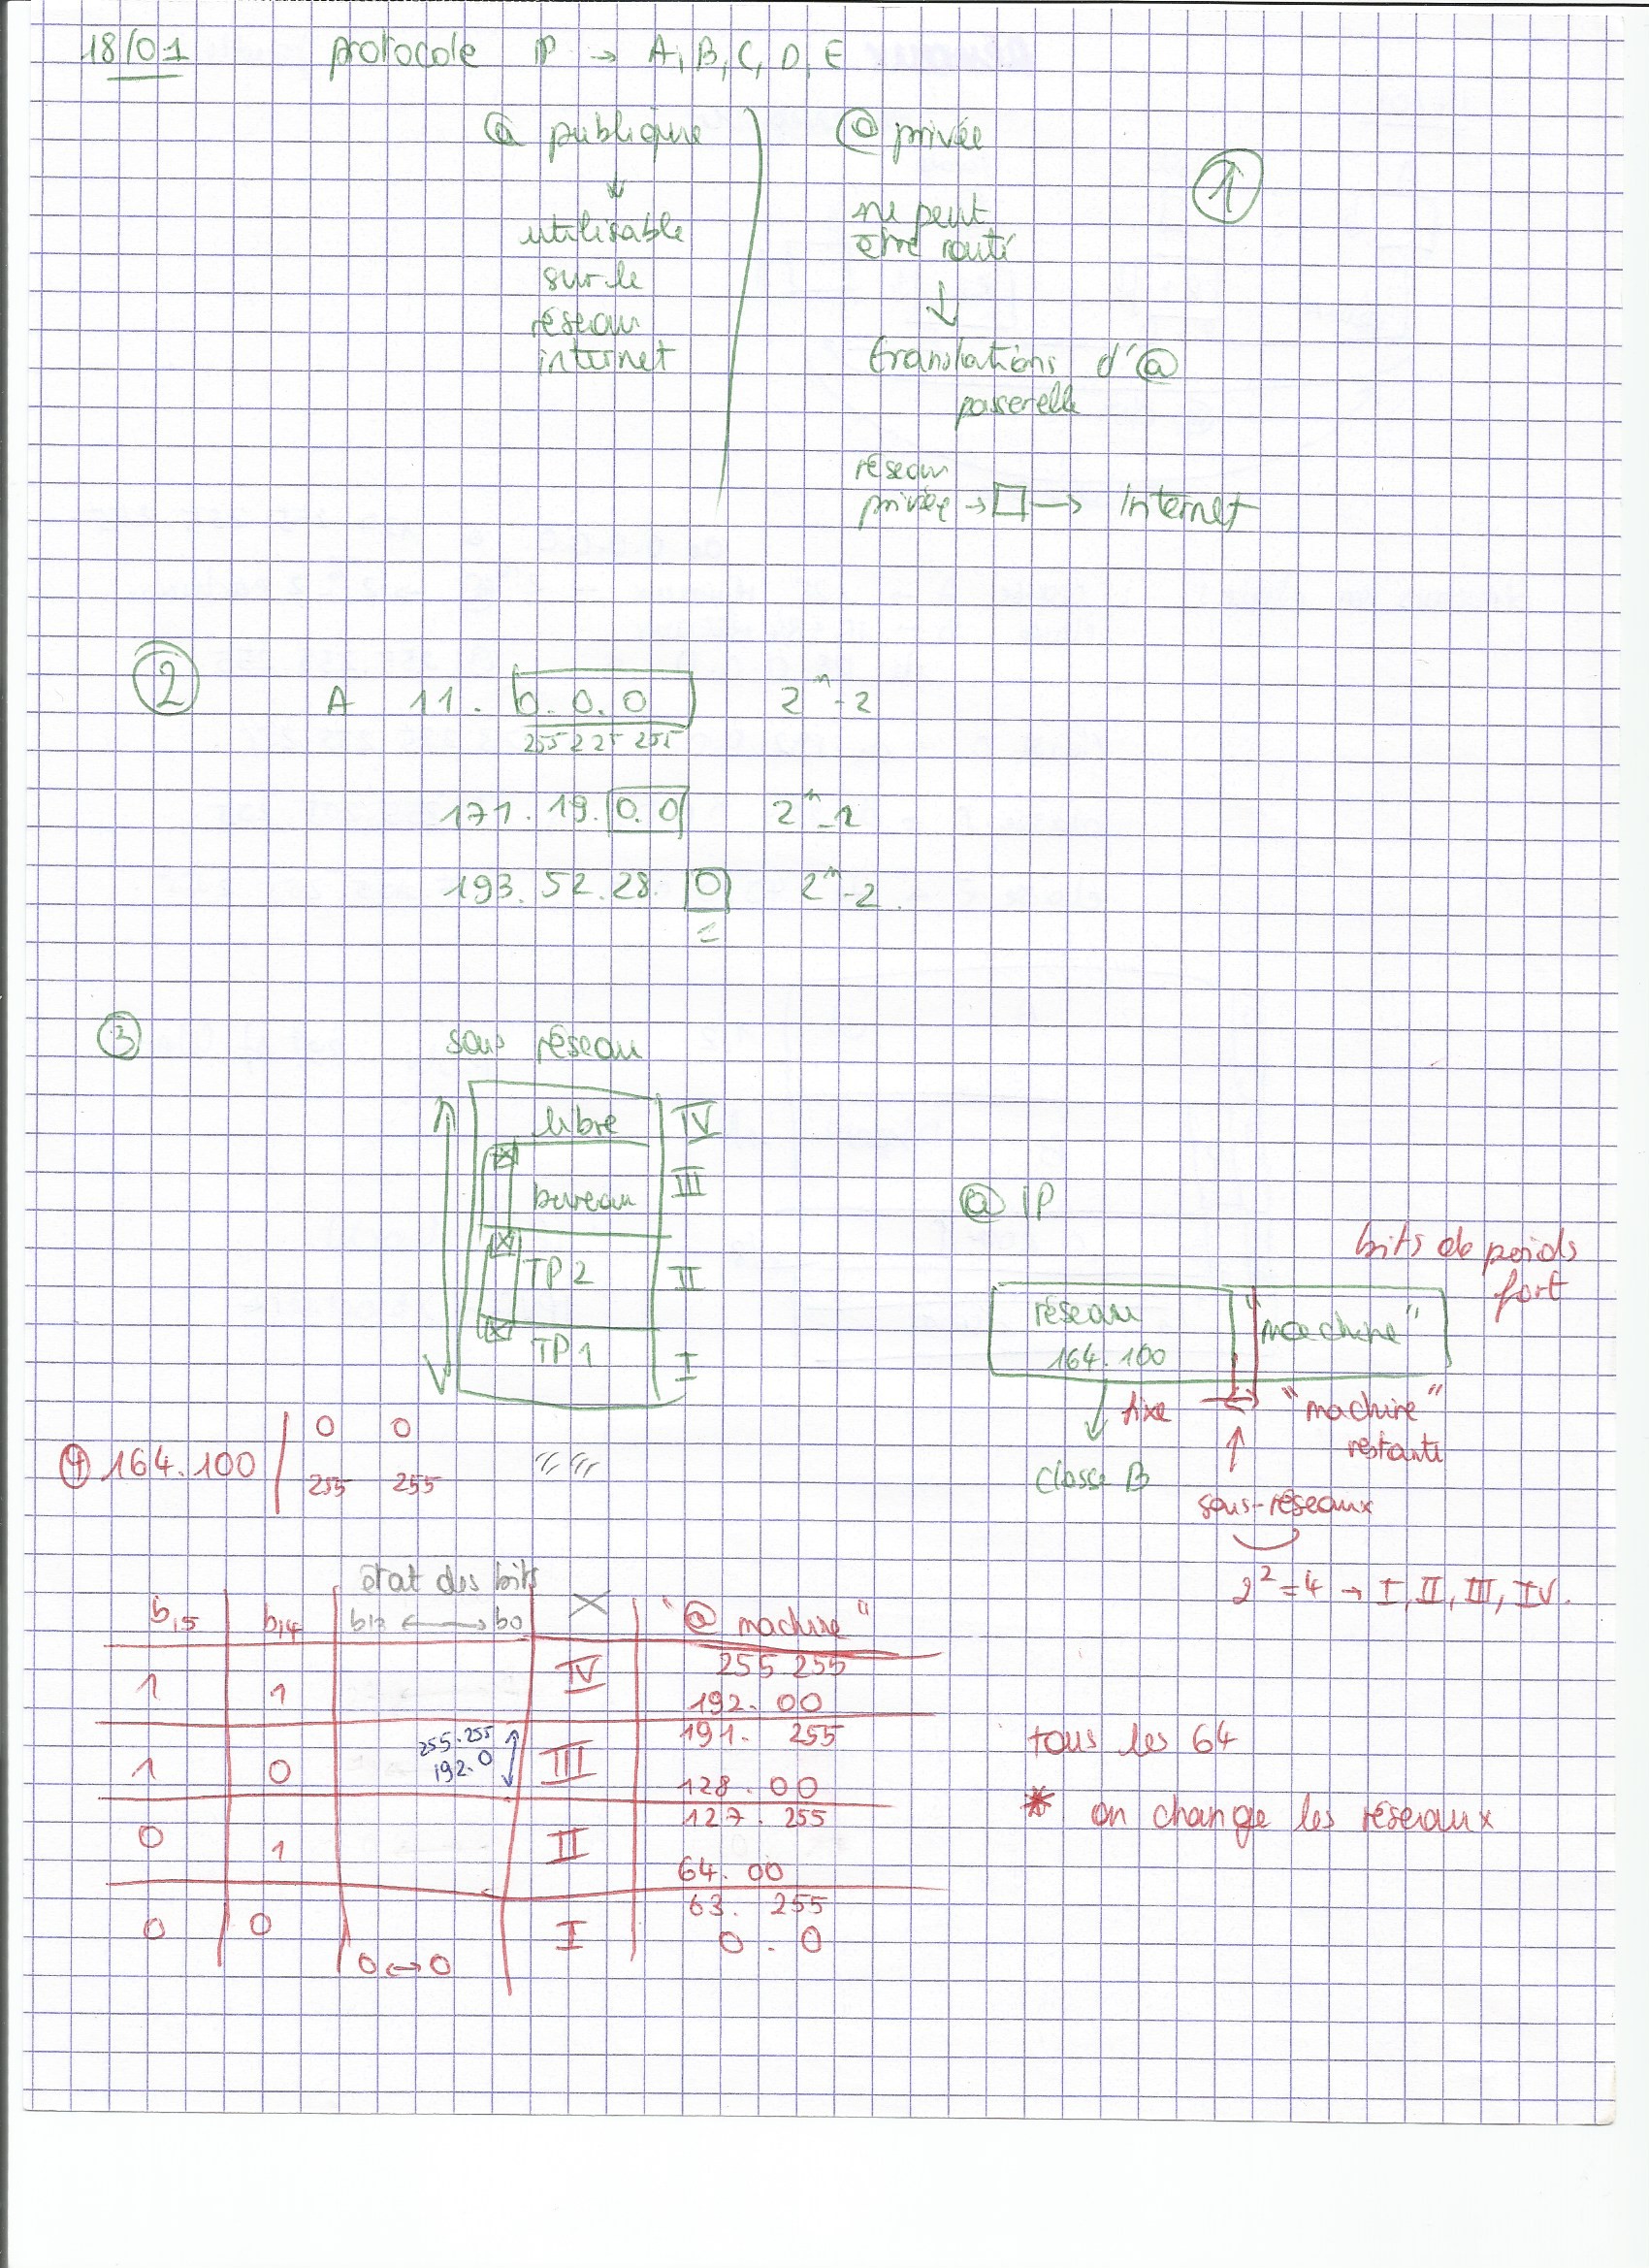 18/01 protocole IP → A, B, C, D, E
@ publique
↓
utilisable
sur le
réseau
internet
@ privée
ne peut
être routé
↓
translations d'@
passerelle
réseau
privée → □ → Internet
①
②
A 11. 0. 0. 0 2^n - 2
255 225 255
171. 19. 0. 0 2^n - 2
193. 52. 28. 0 2^n - 2.
③
sous réseau
libre IV
bureau III
TP2 II
TP1 I
@ IP
bits de poids
fort
réseau "machine"
164. 100
fixe "machine"
restante
classe B
sous-réseaux
2^2 = 4 → I, II, III, IV.
④ 164.100 | 0 0
255 255
état des bits
b15 b14 b13 ↔ b0 X "@ machine"
1 1 IV 255 255
192. 00
1 0 255.255 III 191. 255
192.0 128. 00
0 1 II 127. 255
64. 00
0 0 I 63. 255
0 ↔ 0 0 . 0
tous les 64
* on change les réseaux